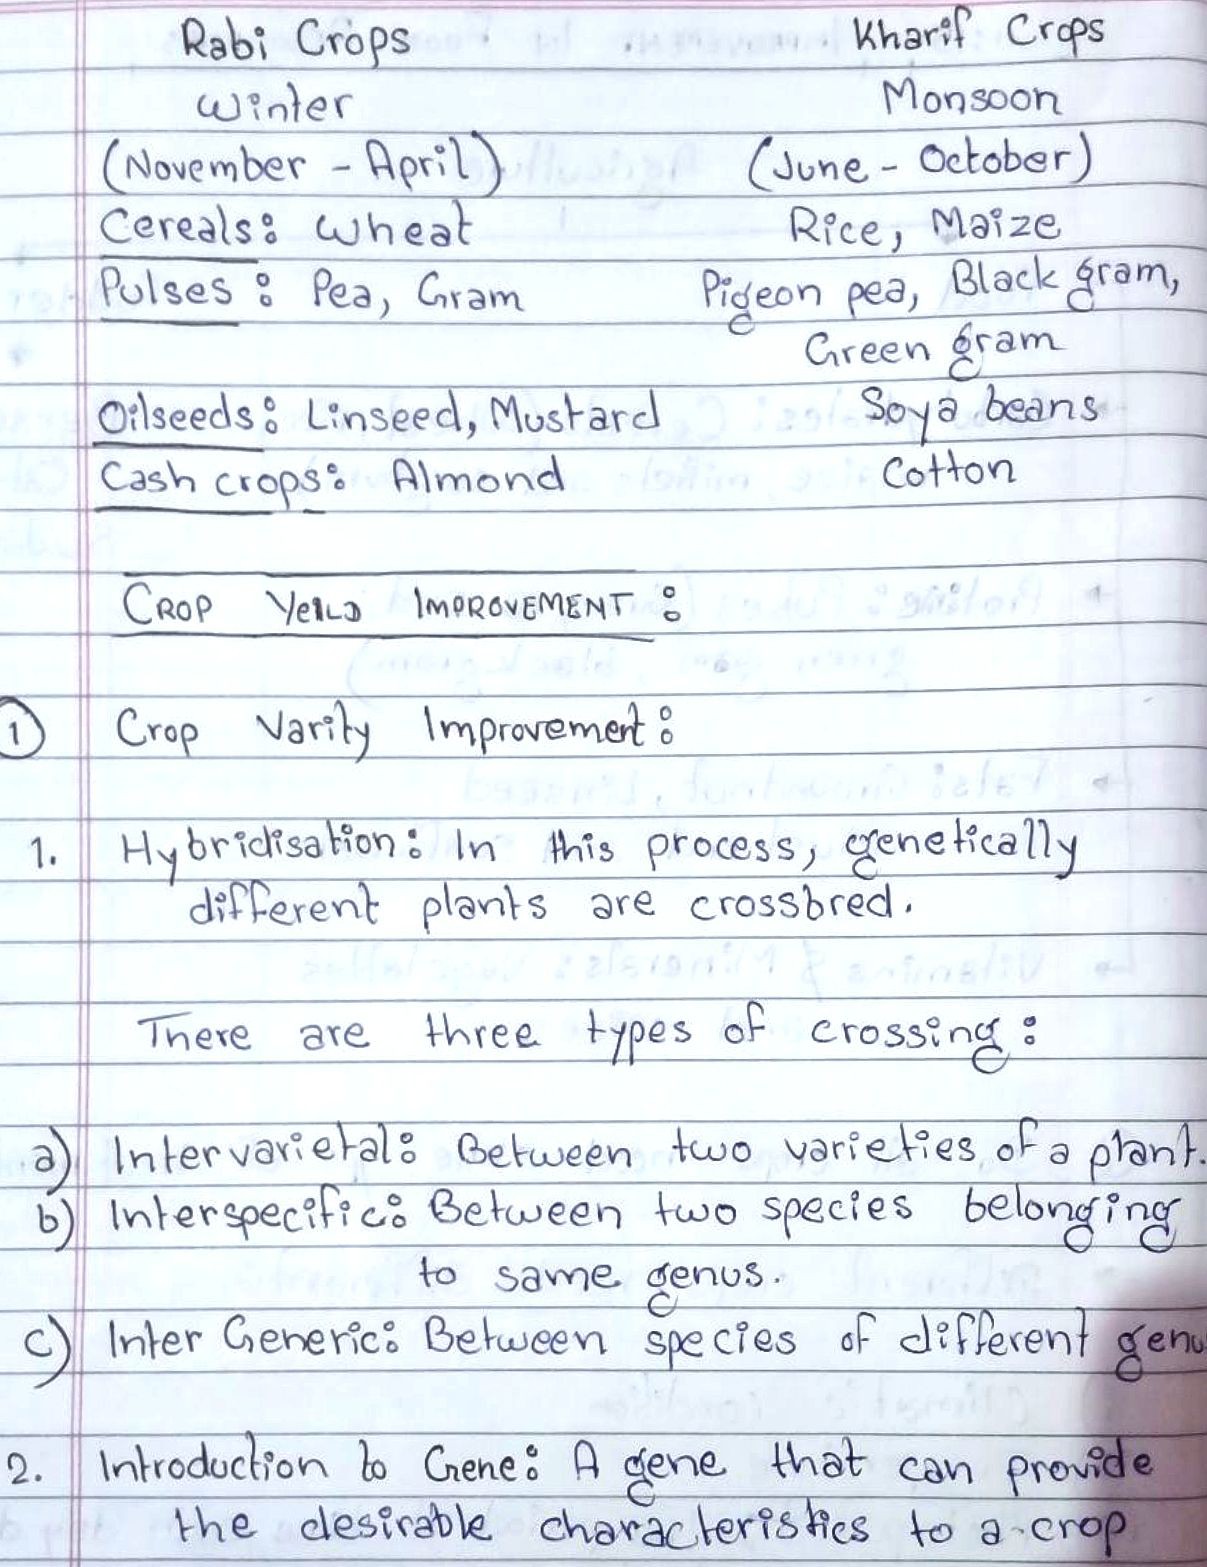 Rabi Crops Kharif Crops
Winter Monsoon
(November - April) (June - October)
Cereals: Wheat Rice, Maize
Pulses: Pea, Gram Pigeon pea, Black gram,
Green gram
Oilseeds: Linseed, Mustard Soya beans
Cash crops: Almond Cotton
CROP YEILD IMPROVEMENT:
1 Crop Varity Improvement:
1. Hybridisation: In this process, genetically
different plants are crossbred.
There are three types of crossing:
a) Intervarietal: Between two varieties of a plant.
b) Interspecific: Between two species belonging
to same genus.
c) Inter Generic: Between species of different genu
2. Introduction to Gene: A gene that can provide
the desirable characteristics to a crop